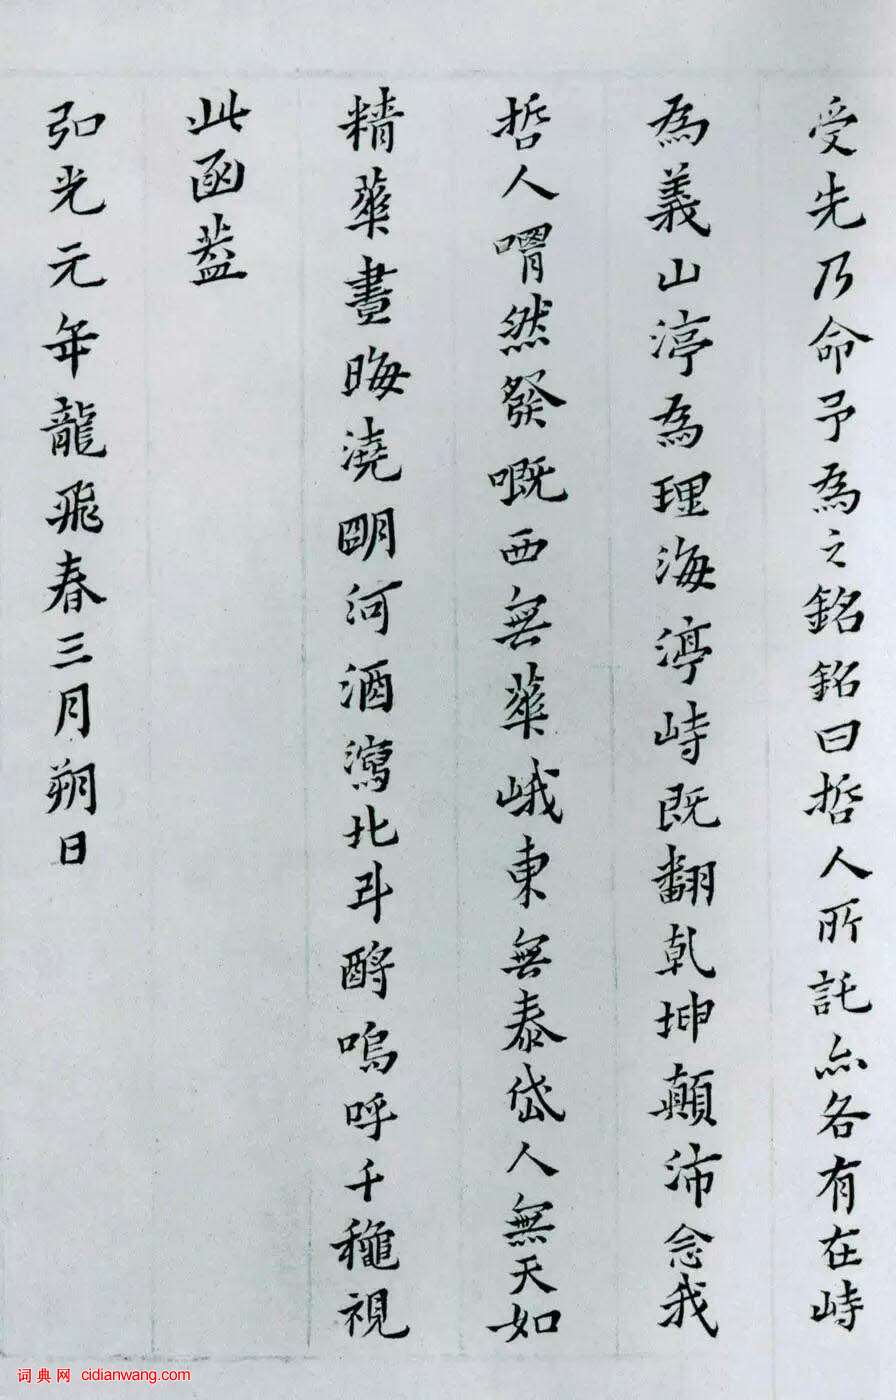 受先乃命予為之銘銘曰哲人所託亦各有在峙
為義山渟為理海渟峙既翻乾坤顛沛念我
哲人喟然發嘅西無華峨東無泰岱人無天如
精華晝晦澆明河酒瀉北斗酹嗚呼千龝視
此函蓋
弘光元年龍飛春三月朔日
词典网 cidianwang.com